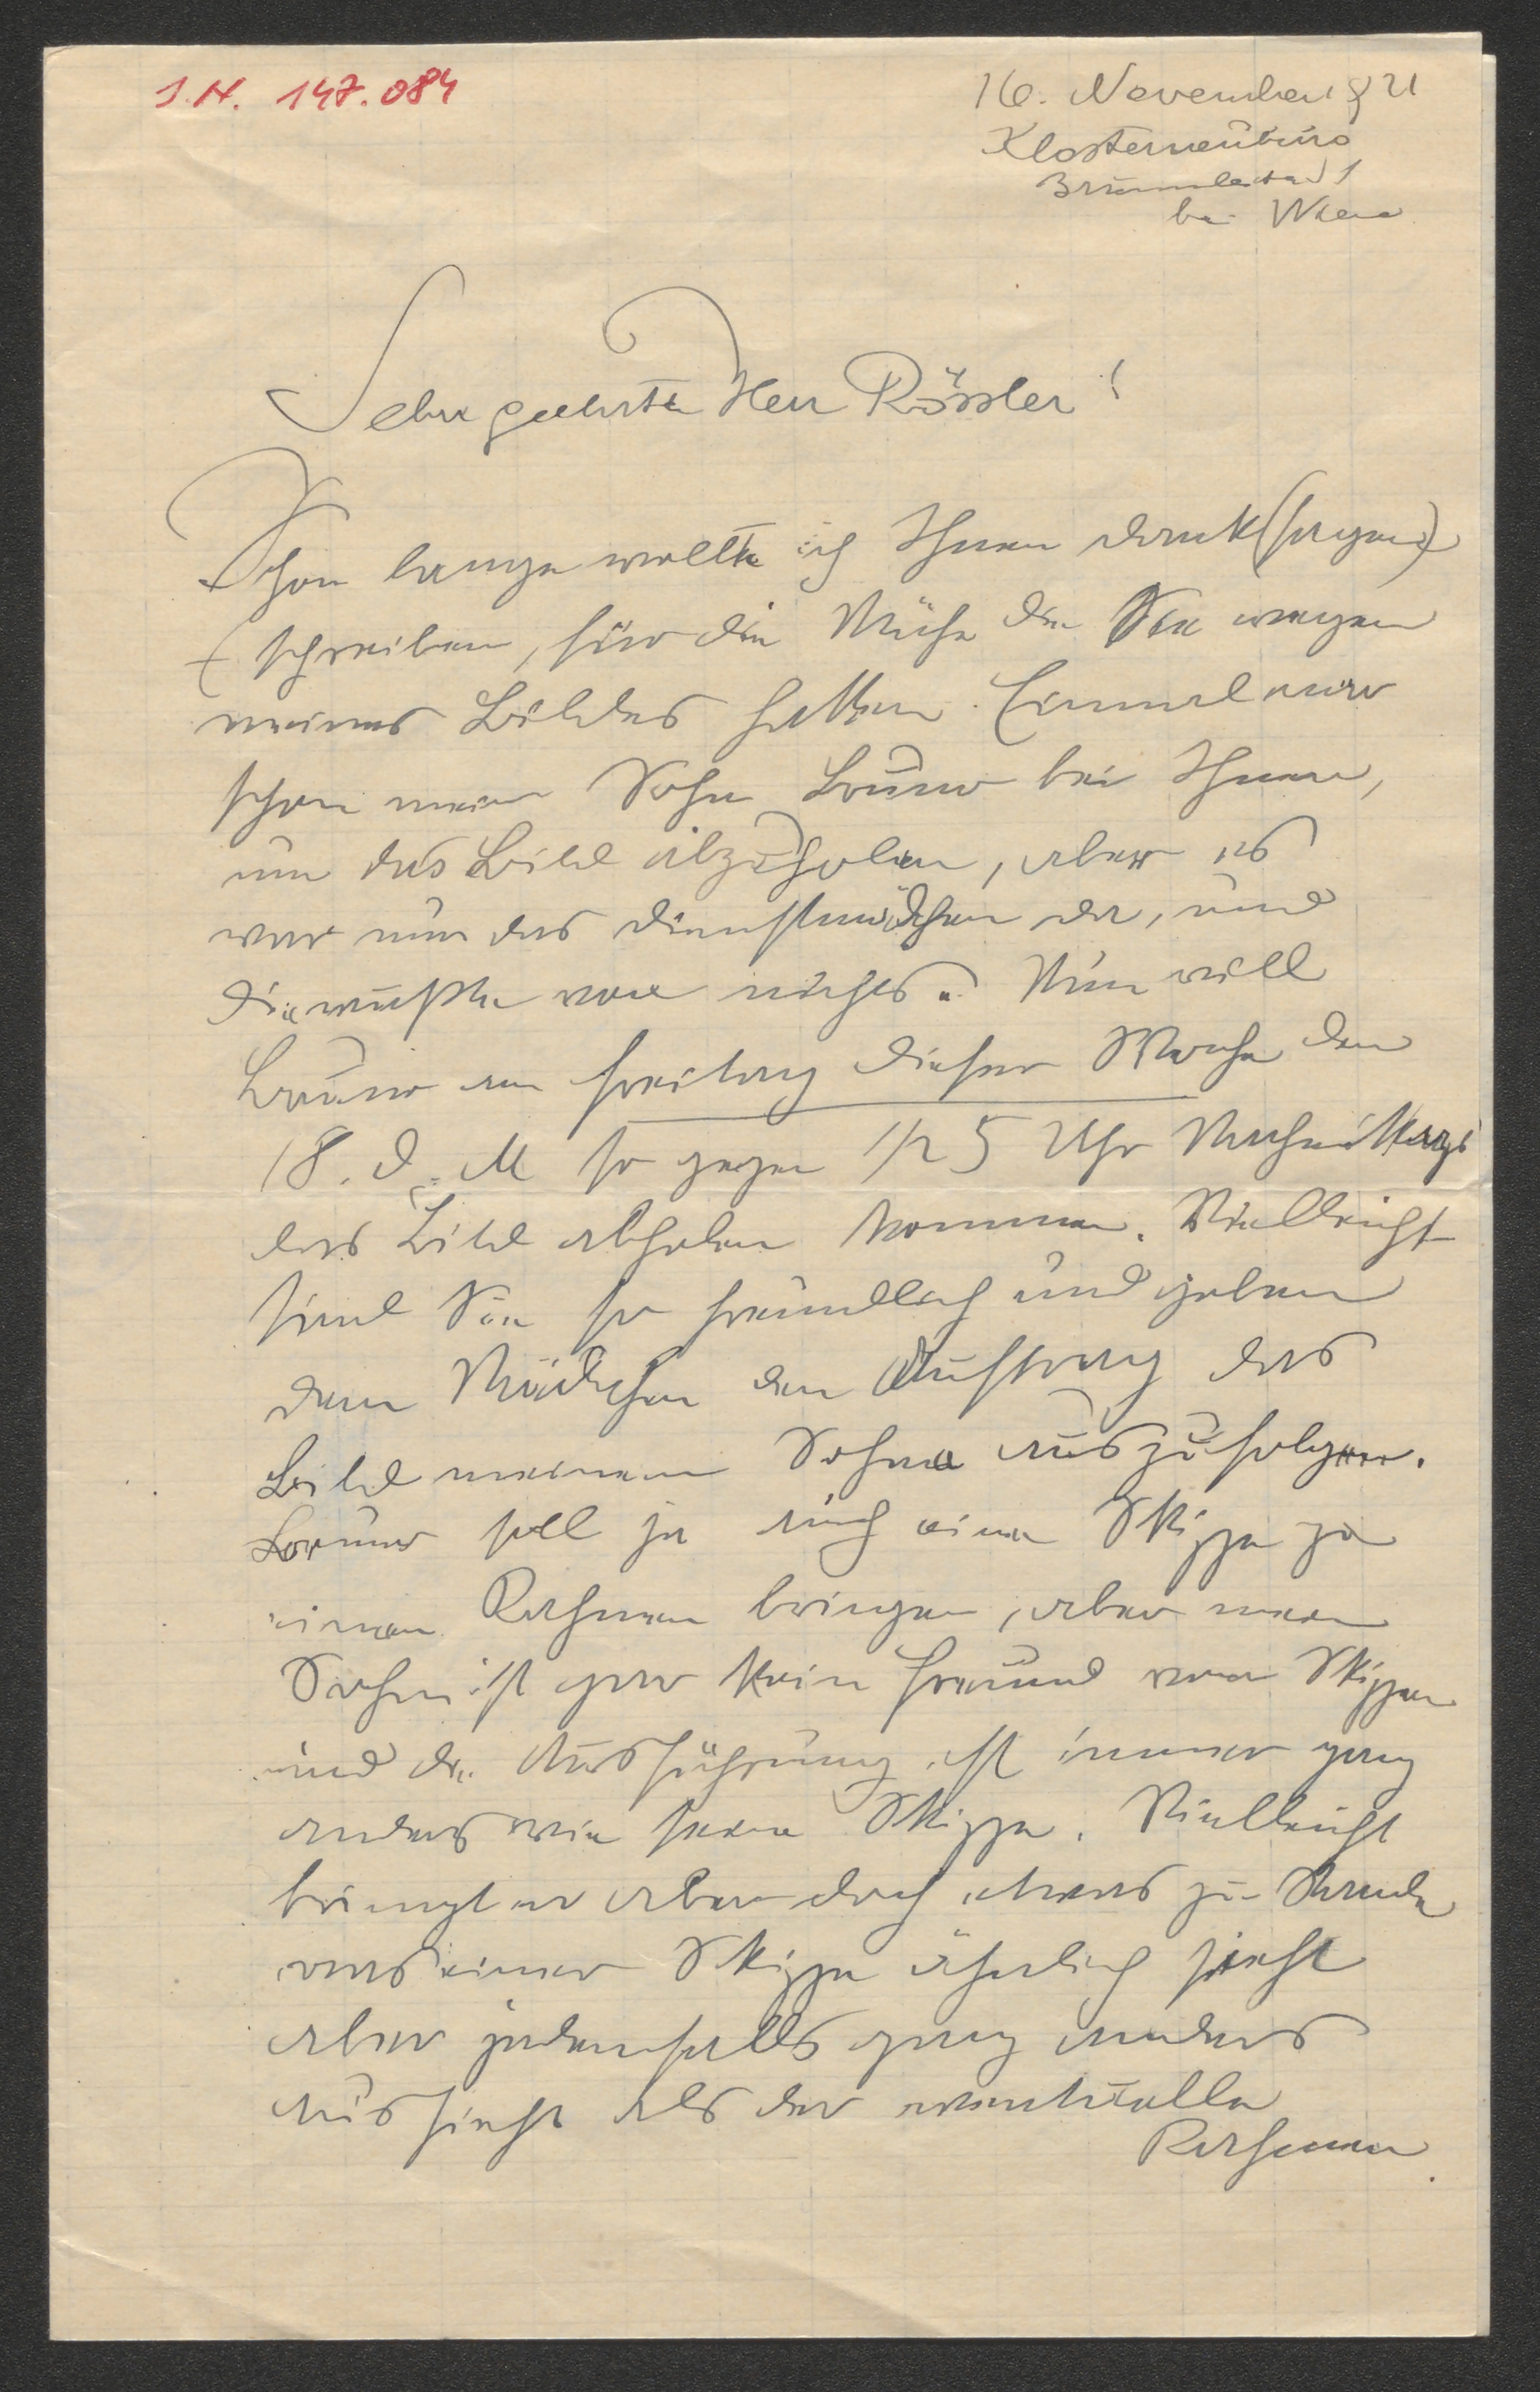 I.N. 147.084
16. November 921
Klosterneuburg
bei Wien
Sehr geehrter Herr Rössler!
Schon lange wollte ich Ihnen dank(sagen)
(schreiben, für die Mühe die Sie wegen
meines Bildes hatten. Einmal war
schon mein Sohn Bruno bei Ihnen,
um das Bild abzuholen, aber es
war nur das Dienstmädchen da, und
die wußte von nichts. Nun will
Bruno am Freitag dieser Woche den
18. d. M so gegen 1/2 5 Uhr Nachmittags
das Bild abholen kommen. Vielleicht
sind Sie so freundlich und geben
dem Mädchen den Auftrag das
Bild meinem Sohne auszufolgen.
Bruno soll ja auch eine Skizze zu
einem Rahmen bringen, aber mein
Sohn ist gar kein Freund von Skizzen
und die Ausführung ist immer ganz
anders wie seine Skizze. Vielleicht
bringt er aber doch etwas zu Stande
was einer Skizze ähnlich sieht
aber jedenfalls ganz anders
aussieht als der eventuelle
Rahmen.